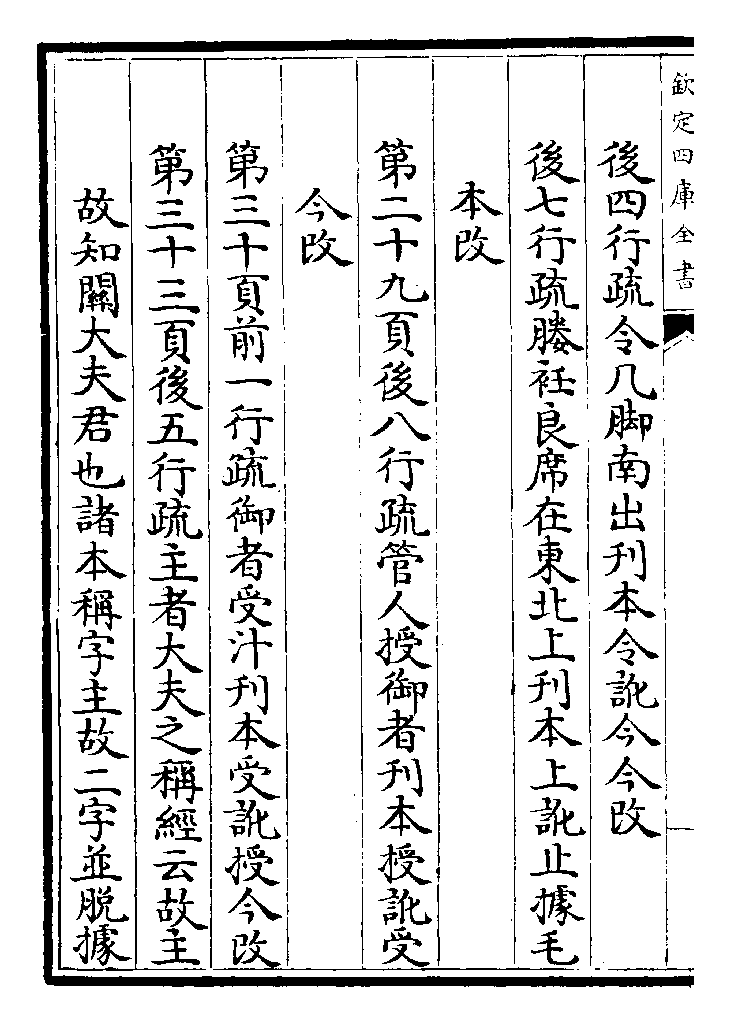 欽定四庫全書
後四行疏令几脚南出刋本令訛今今改
後七行疏媵衽良席在東北上刋本上訛止據毛
本改
第二十九頁後八行疏管人授御者刋本授訛受
今改
第三十頁前一行疏御者受汁刋本受訛授今改
第三十三頁後五行疏主者大夫之稱經云故主
故知關大夫君也諸本稱字主故二字並脱據